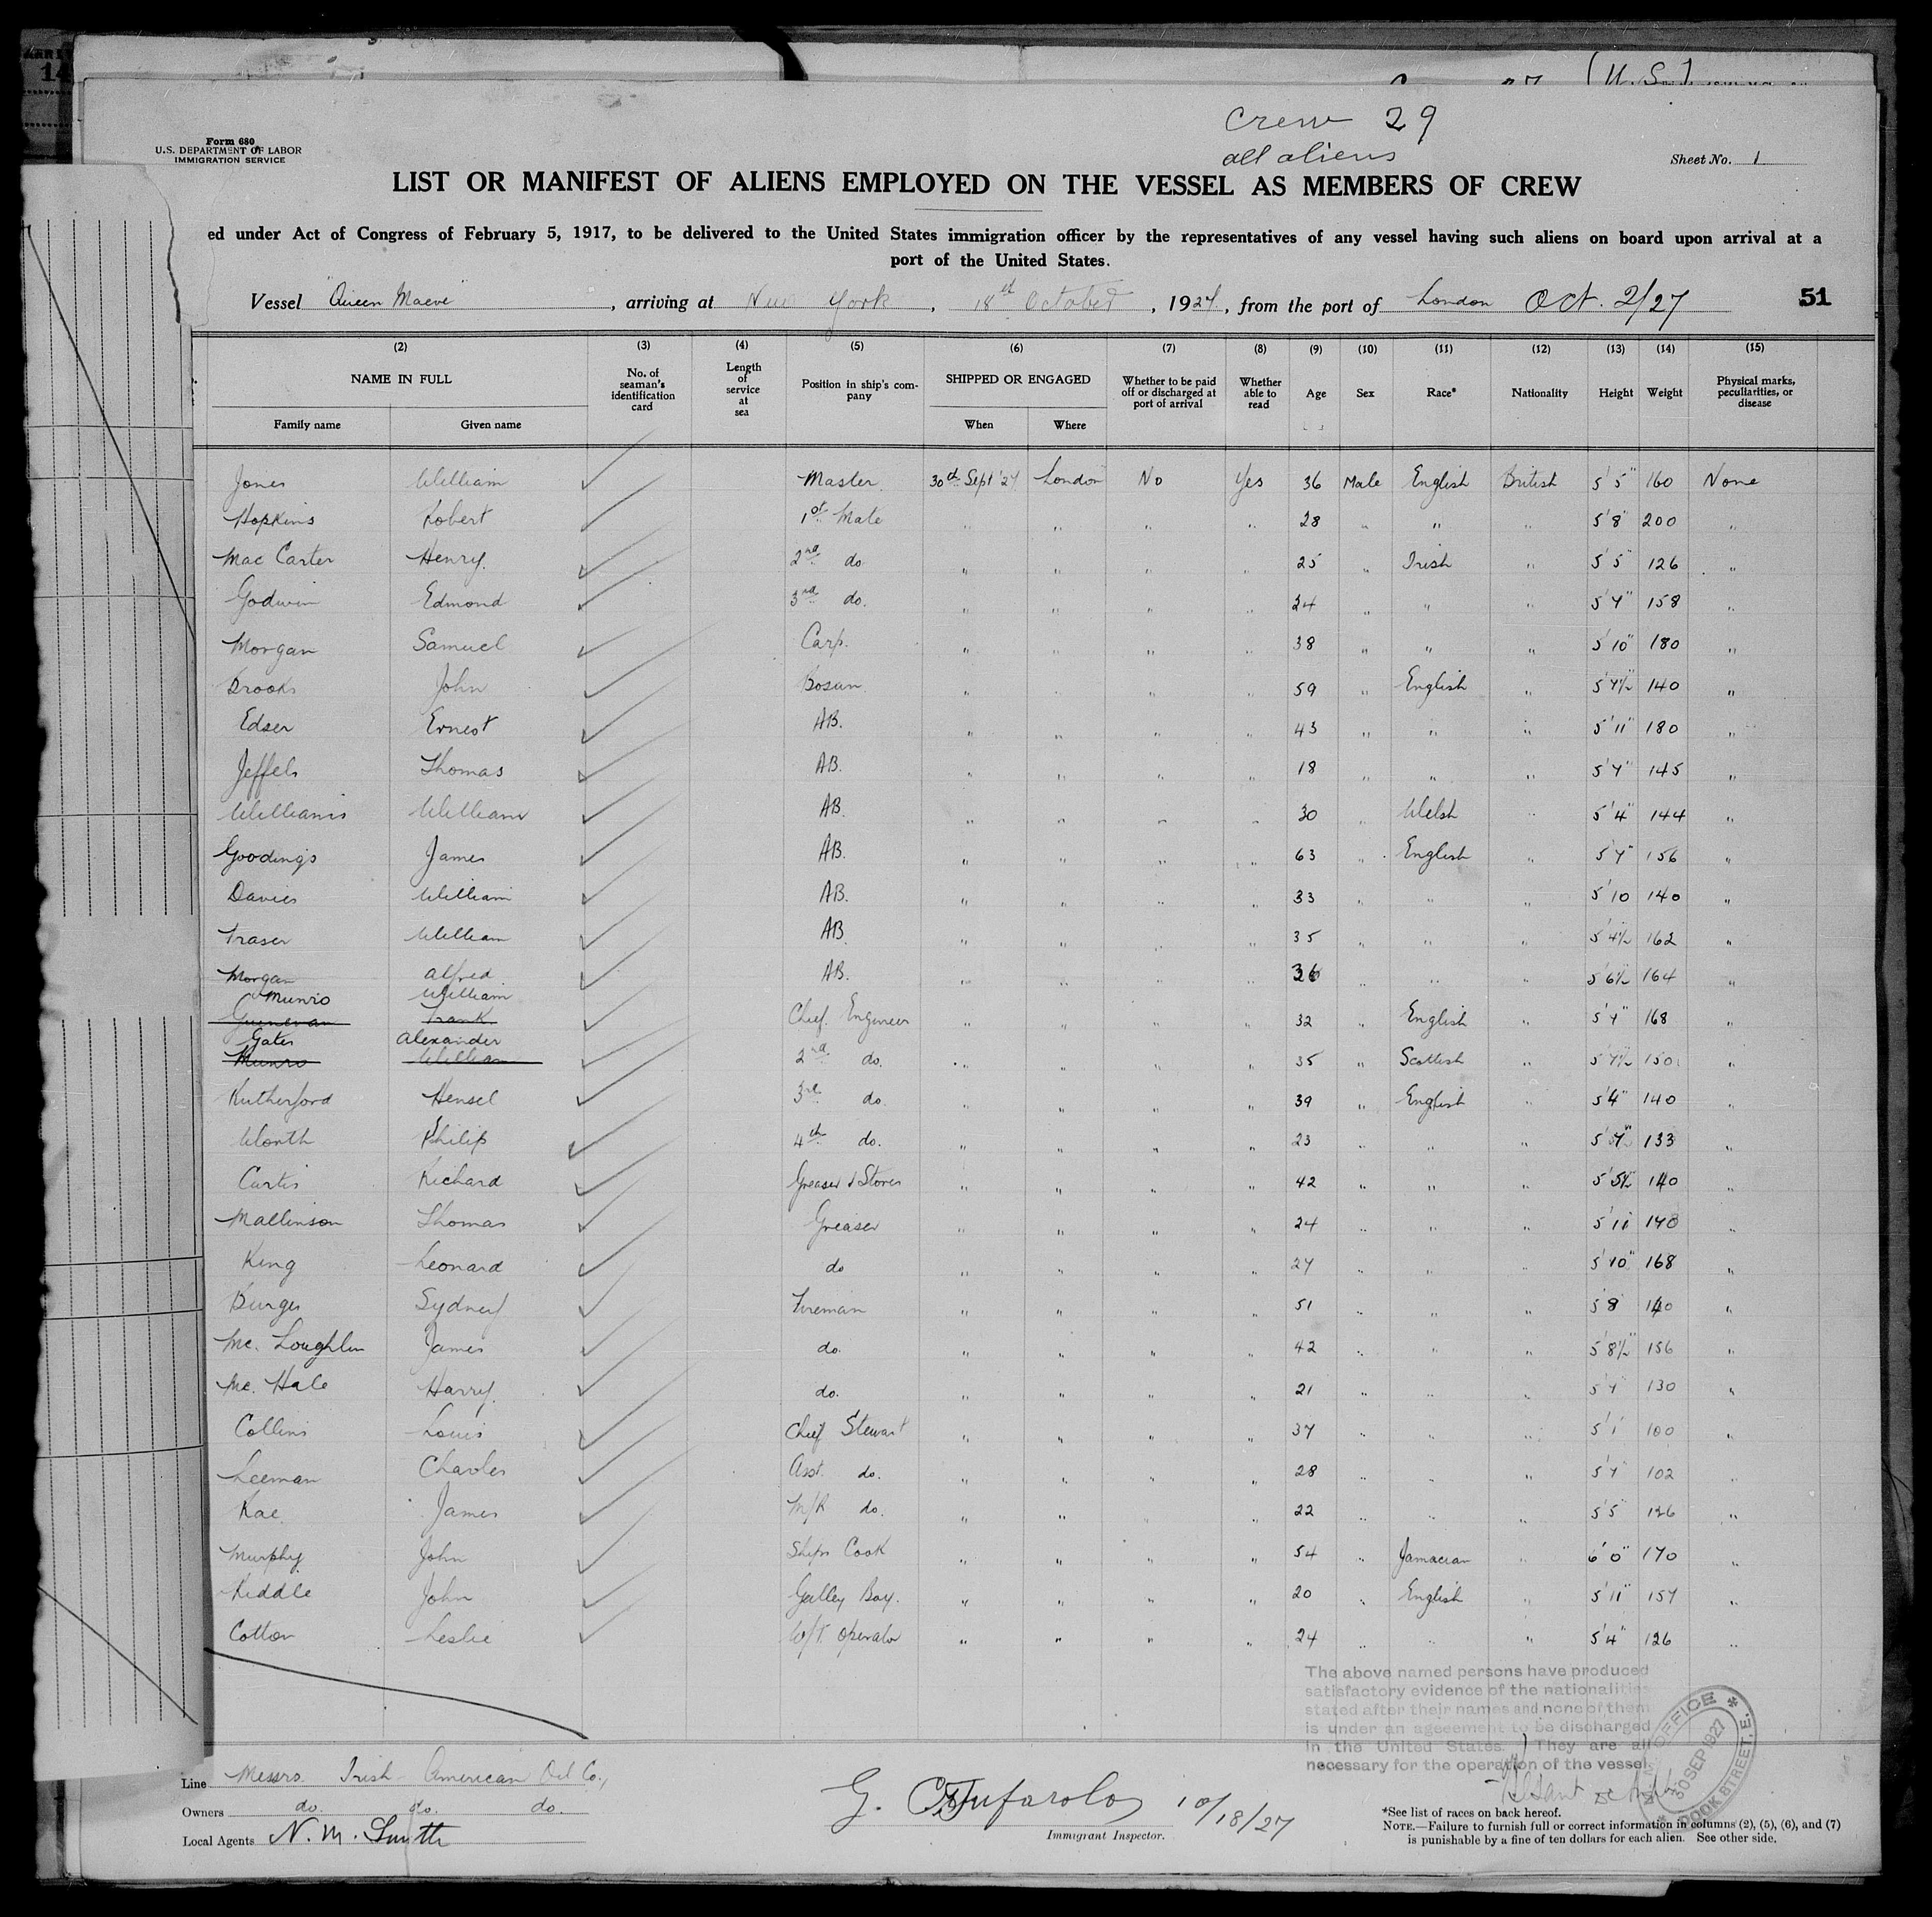 14
(U.S.)
Crew 29
all aliens
Form 680
U.S. DEPARTMENT OF LABOR
IMMIGRATION SERVICE
Sheet No. 1
LIST OR MANIFEST OF ALIENS EMPLOYED ON THE VESSEL AS MEMBERS OF CREW
ed under Act of Congress of February 5, 1917, to be delivered to the United States immigration officer by the representatives of any vessel having such aliens on board upon arrival at a
port of the United States.
Vessel "Queen Maeve" , arriving at New York , 18th October , 1927, from the port of London Oct. 2/27 51
(2) (3) (4) (5) (6) (7) (8) (9) (10) (11) (12) (13) (14) (15)
NAME IN FULL No. of seaman's identification card Length of service at sea Position in ship's company SHIPPED OR ENGAGED Whether to be paid off or discharged at port of arrival Whether able to read Age Sex Race* Nationality Height Weight Physical marks, peculiarities, or disease
Family name Given name When Where
Jones William Master 30th Sept '27 London No Yes 36 Male English British 5'5" 160 None
Hopkins Robert 1st Mate " " " " 28 " " " 5'8" 200 "
Mac Carter Henry. 2nd do " " " " 25 " Irish " 5'5" 126 "
Godwin Edmond 3rd do. " " " " 24 " " " 5'7" 158 "
Morgan Samuel Carp. " " " " 38 " " " 5'10" 180 "
Brooks John Bosun " " " " 59 " English " 5'7½ 140 "
Edser Ernest AB. " " " " 43 " " " 5'11" 180 "
Jeffels Thomas AB. " " " " 18 " " " 5'7" 145 "
Williams William AB. " " " " 30 " Welsh " 5'4" 144 "
Goodings James AB. " " " " 63 " English " 5'7" 156 "
Davies William AB. " " " " 33 " " " 5'10 140 "
Fraser William AB " " " " 35 " " " 5'4½ 162 "
Morgan Alfred AB. " " " " 36 " " " 5'6½ 164 "
Munro William
Guinevan Frank Chief Engineer " " " " 32 " English " 5'7" 168 "
Gates Alexander
Munro William 2nd do. " " " " 35 " Scottish " 5'7½ 150 "
Rutherford Hensel 3rd do. " " " " 39 " English " 5'4" 140 "
Worth Philip 4th do. " " " " 23 " " " 133 "
Curtis Richard Greaser & Stores " " " " 42 " " " 5'5½ 140 "
Mallinson Thomas Greaser " " " " 24 " " " 5'11 "
King Leonard do " " " " 27 " " " 5'10" 168 "
Burges Sydney Fireman " " " " 51 " " " 5'8 140 "
Mc. Loughlin James do. " " " " 42 " " " 5'8½" 156 "
Mc. Hale Harry. do. " " " " 21 " " " 5'7" 130 "
Collins Louis Chief Stewart " " " " 37 " " " 5'1" 100 "
Leeman Charles Asst. do. " " " " 28 " " " 5'7" 102 "
Rae James M/R do. " " " " 22 " " " 5'5" 126 "
Murphy John Ships Cook " " " " 54 " Jamacian " 6'0" 170 "
Riddle John Galley Boy. " " " " 20 " English " 5'11" 157 "
Cotton Leslie W/T. Operator " " " " 24 " " " 5'4" 126 "
The above named persons have produced
satisfactory evidence of the nationalities
stated after their names and none of them
is under an ageeement to be discharged
in the United States. They are all
necessary for the operation of the vessel.
OFFICE
30 SEP 1927
DOCK STREET, E.
Line Messrs. Irish American Oil Co.,
Owners do. do. do.
Local Agents N. M. Smyth
G. Tufarolo 10/18/27
Immigrant Inspector.
*See list of races on back hereof.
NOTE.—Failure to furnish full or correct information in columns (2), (5), (6), and (7)
is punishable by a fine of ten dollars for each alien. See other side.